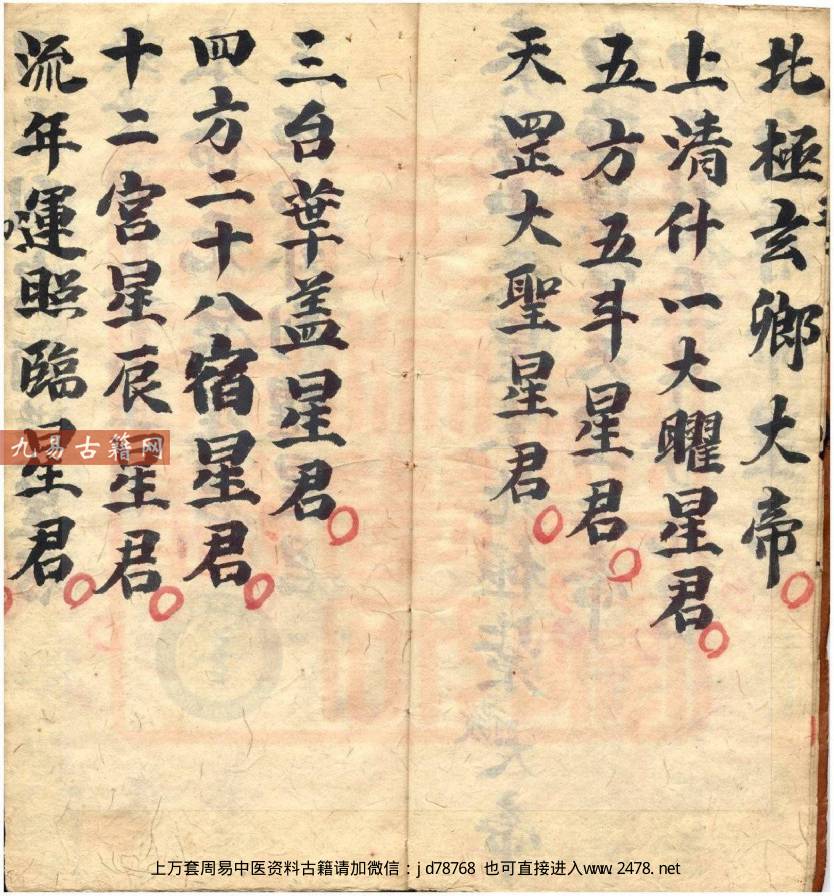 北極玄鄉大帝
上清什一大曜星君
五方五斗星君
天罡大聖星君
三台華盖星君
四方二十八宿星君
十二宮星辰星君
流年運照臨星君
九易古籍网
上万套周易中医资料古籍请加微信：jd78768 也可直接进入www.2478.net